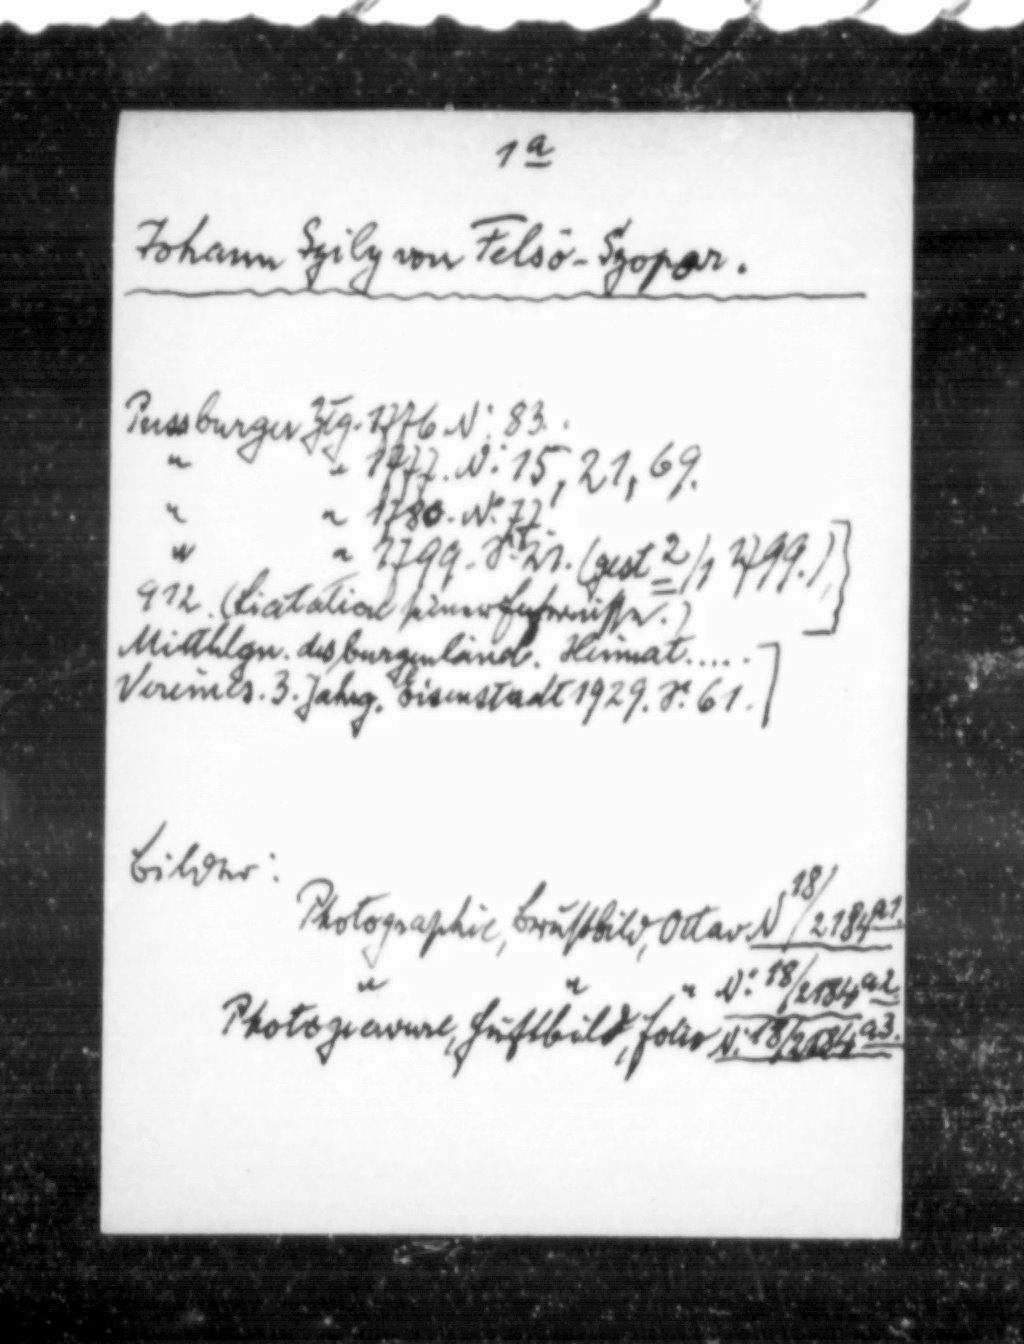 1a
Johann Szily von Felsö-Szopor.
Pressburger Ztg. 1776 N: 83.
" " 1777. N: 15, 21, 69.
" " 1780. N. 77
" " 1799. S. 21. (gest 2/1 1799.)
912. (Licitation seiner Fahrnisse.)
Mitthlgn. des burgenländ. Heimat.....
Vereines. 3. Jahrg. Eisenstadt 1929. S. 61.
Bilder:
Photographie, Brustbild, Octav N 18/2184a1.
" " " N: 18/2184a2.
Photogravure, Hüftbild, folio N: 18/2184a3.